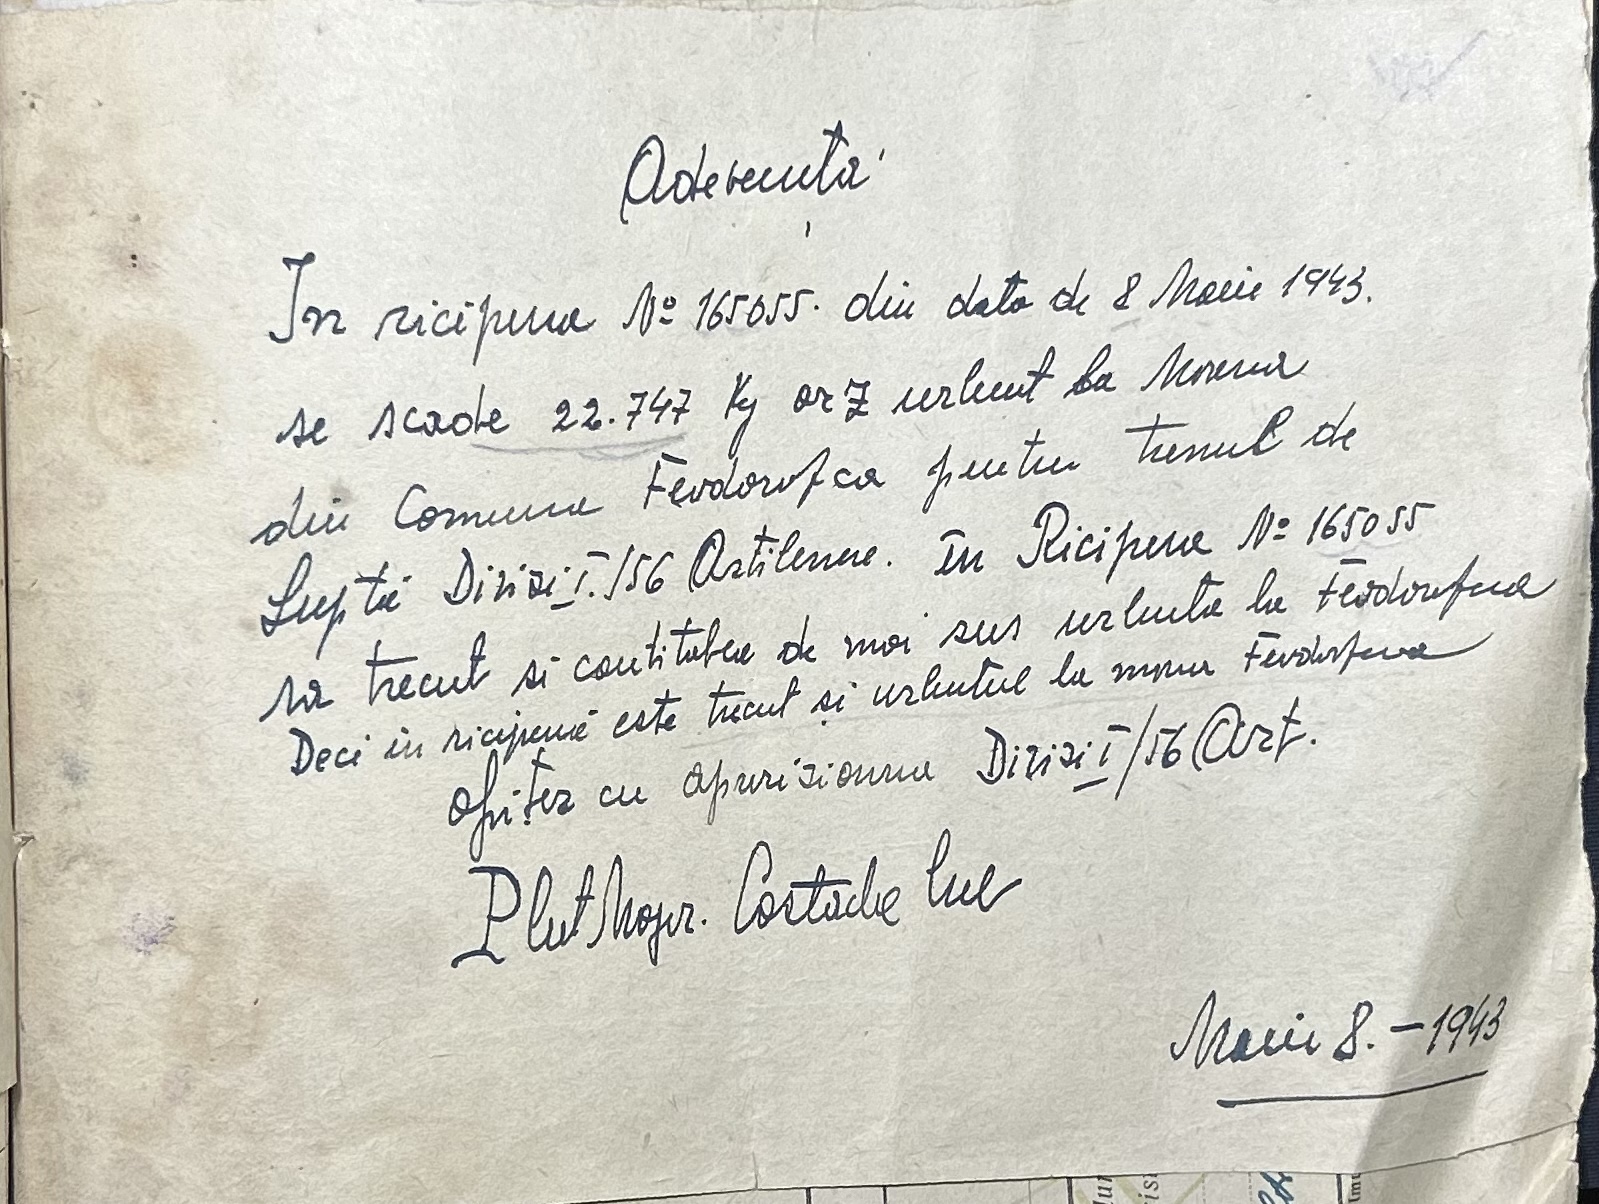 Adeverință
In recipena № 165055. din data de 8 Marie 1943.
se scade 22.747 Kg orz urluit la Moara
din Comuna Feodorofca pentru trenul de
Luptă Divizi I./56 Artilerie. în Recipena № 165055
sa trecut si contitatea de mai sus urluita la Feodorofca
Deci in recipenă este trecut și urluitul la moara Feodorofca
ofițer cu aprovizionarea Divizi I/56 Art.
Plut Major. Costache
Marie 8. - 1943